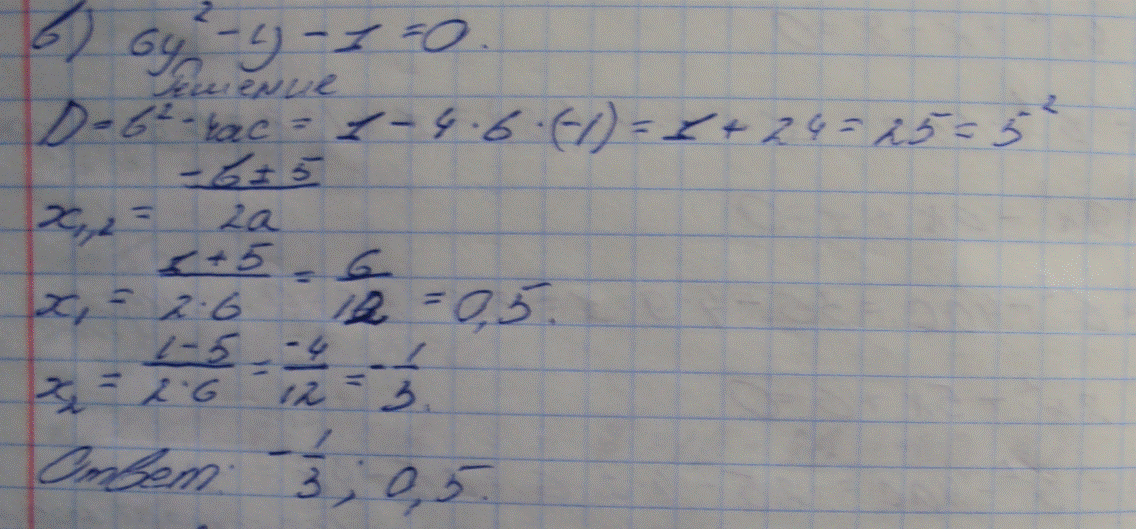 б) 6y² - y - 1 = 0.
Решение
D = b² - 4ac = 1 - 4·6·(-1) = 1 + 24 = 25 = 5²
x₁,₂ = (-b ± 5)/2a
x₁ = (1+5)/(2·6) = 6/12 = 0,5.
x₂ = (1-5)/(2·6) = -4/12 = -1/3.
Ответ: -1/3; 0,5.